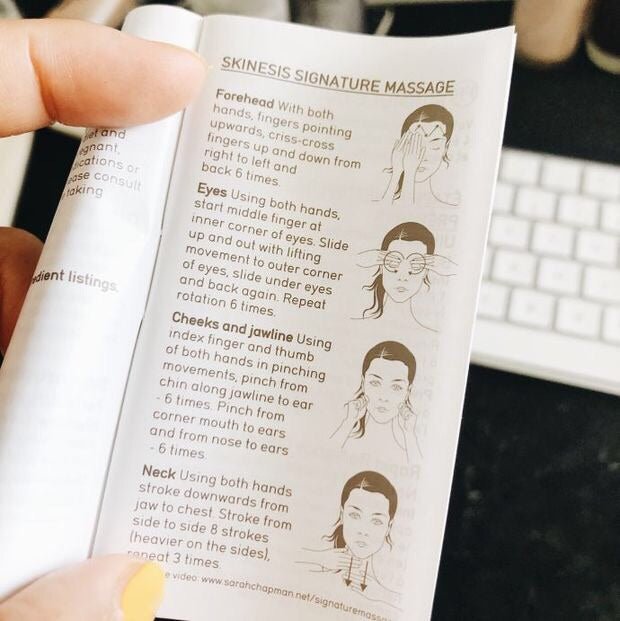 SKINESIS SIGNATURE MASSAGE
Forehead With both
hands, fingers pointing
upwards, criss-cross
fingers up and down from
right to left and
back 6 times.
Eyes Using both hands,
start middle finger at
inner corner of eyes. Slide
up and out with lifting
movement to outer corner
of eyes, slide under eyes
and back again. Repeat
rotation 6 times.
Cheeks and jawline Using
index finger and thumb
of both hands in pinching
movements, pinch from
chin along jawline to ear
- 6 times. Pinch from
corner mouth to ears
and from nose to ears
- 6 times.
Neck Using both hands
stroke downwards from
jaw to chest. Stroke from
side to side 8 strokes
(heavier on the sides),
repeat 3 times.
video: www.sarahchapman.net/signaturemassa
and
or
consult
taking
listings.